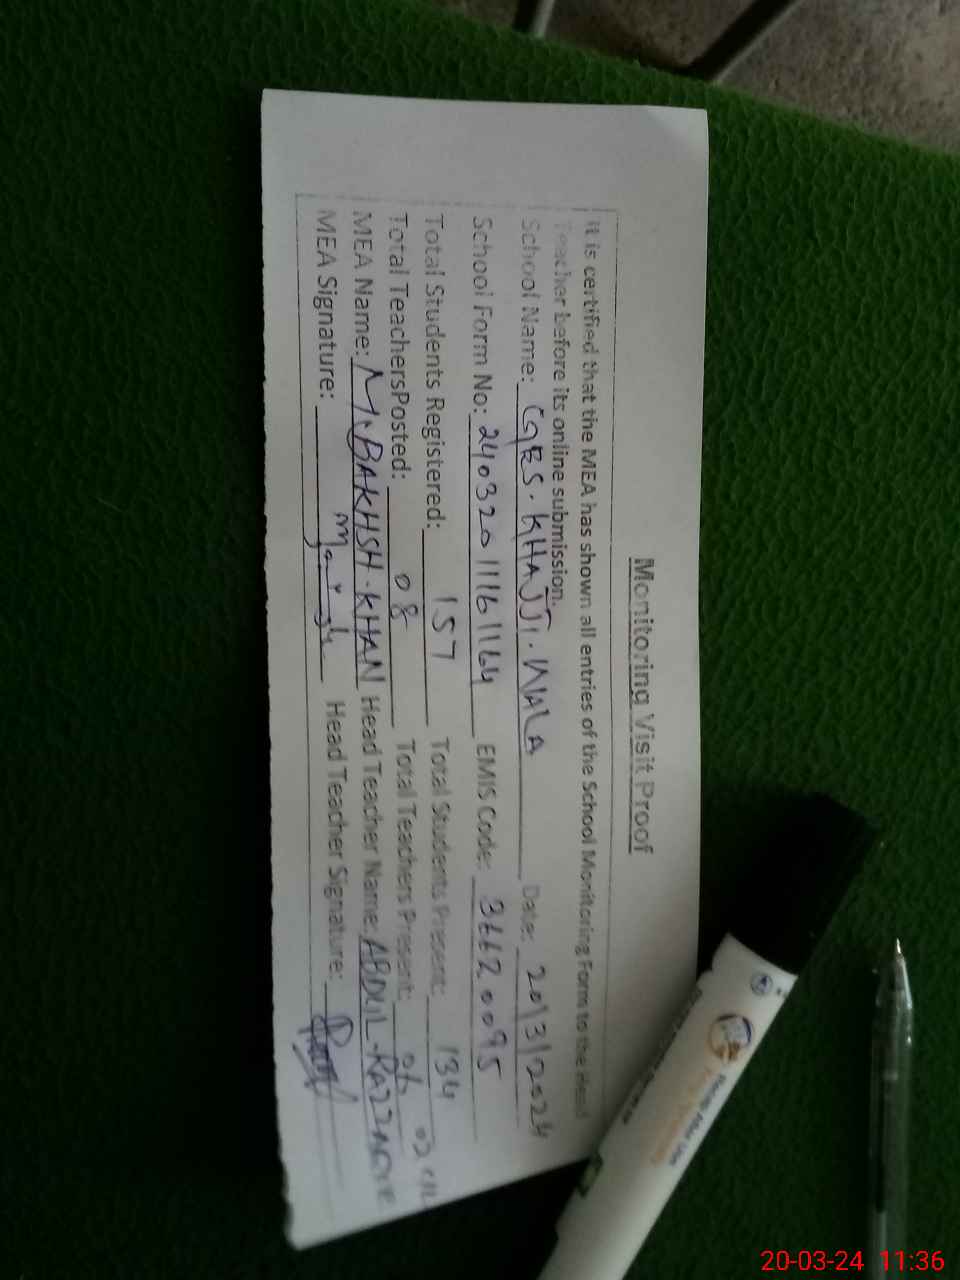 Monitoring Visit Proof
It is certified that the MEA has shown all entries of the School Monitoring Form to the Head
Teacher before its online submission.
School Name: GGES. KHAJJI. WALA Date: 20/3/2024
School Form No: 24032011161164 EMIS Code: 36620095
Total Students Registered: 157 Total Students Present: 134
Total TeachersPosted: 08 Total Teachers Present: 06 02
MEA Name: M. BAKHSH. KHAN Head Teacher Name: ABDUL. RAZZAQUE
MEA Signature: Head Teacher Signature:
20-03-24 11:36